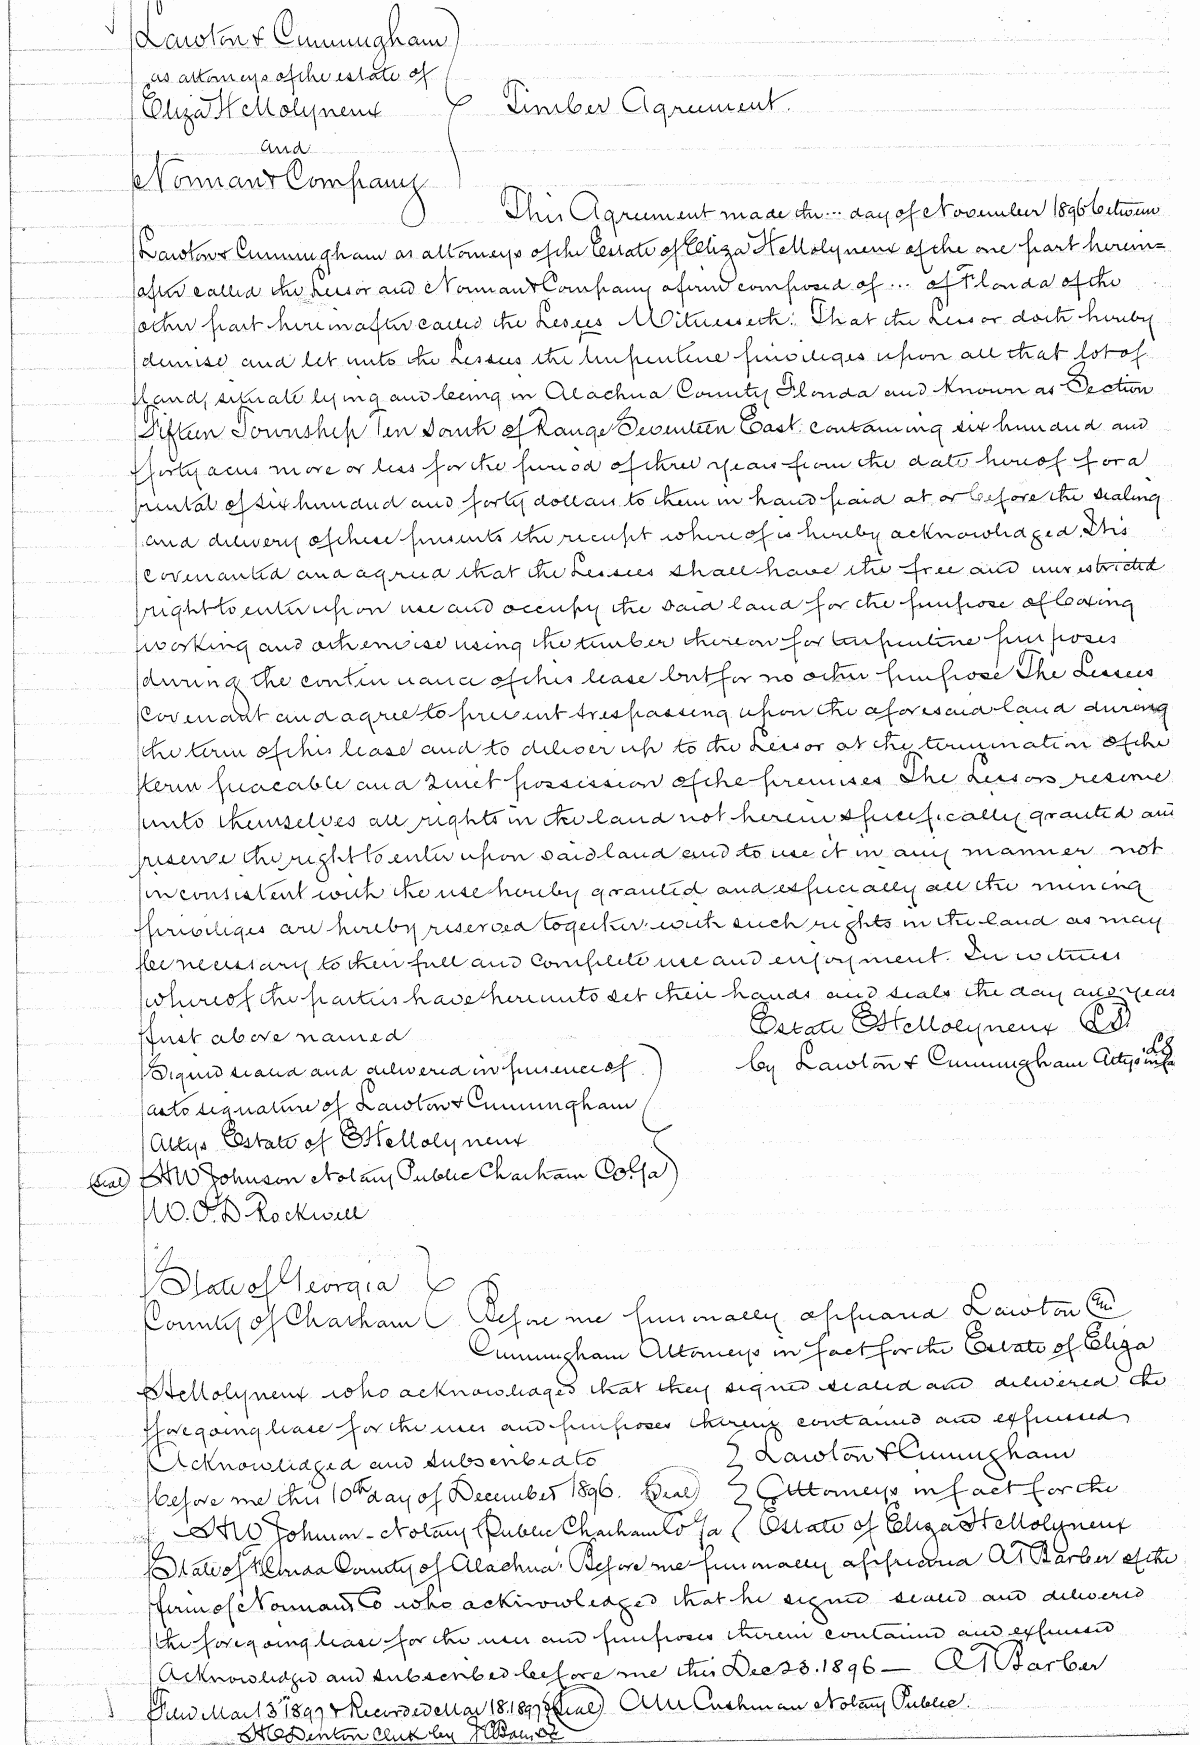 Lawton & Cunningham
as attorneys of the estate of
Eliza H Molyneux
Timber Agreement.
and
Norman & Company
This Agreement made the ... day of November 1896 between
Lawton & Cunningham as attorneys of the Estate of Eliza H Molyneux of the one part herein=
after called the Lessor and Norman & Company a firm composed of ... of Florida of the
other part hereinafter called the Lesees Witnesseth: That the Lessor doth hereby
demise and let unto the Lessees the turpentine priviliges upon all that lot of
land, situate lying and being in Alachua County Florida and known as Section
Fifteen Township Ten South of Range Seventeen East. containing six hundred and
forty acres more or less for the period of three years from the date hereof for a
rental of six hundred and forty dollars to them in hand paid at or before the sealing
and delivery of these presents the receipt whereof is hereby acknowledged. It is
covenanted and agreed that the Lessees shall have the free and unrestricted
right to enter upon use and occupy the said land for the purpose of boxing
working and otherwise using the timber thereon for turpentine purposes
during the continuance of this lease but for no other purpose The Lessees
covenant and agree to prevent trespassing upon the aforesaid land during
the term of this lease and to deliver up to the Lessor at the termination of the
term peacable and quiet possession of the premises The Lessors reserve
unto themselves all rights in the land not herein specifically granted and
reserve the right to enter upon said land and to use it in any manner not
inconsistent with the use hereby granted and especially all the mining
priviliges are hereby reserved together with such rights in the land as may
be necessary to their full and complete use and enjoyment. In witness
whereof the parties have hereunto set their hands and seals the day and year
first above named
Estate E H Molyneux LS
by Lawton & Cunningham Attys in fa LS
Signed sealed and delivered in presence of
as to signature of Lawton & Cunningham
Attys Estate of E H Molyneux
Seal H W Johnson Notary Public Chatham Co. Ga
W. O. D Rockwell
State of Georgia
County of Chatham Before me personally appeared Lawton &
Cunningham Attorneys in fact for the Estate of Eliza
H Molyneux who acknowledged that they signed sealed and delivered the
foregoing lease for the uses and purposes therein contained and expressed
Acknowledged and subscribed to Lawton & Cunningham
before me this 10th day of December 1896. Seal Attorneys in fact for the
H W Johnson - Notary Public Chatham Co Ga Estate of Eliza H Molyneux
State of Florida County of Alachua: Before me personally appeared A T Barber of the
firm of Norman & Co who acknowledged that he signed sealed and delivered
the foregoing lease for the uses and purposes therein contained and expressed
Acknowledged and subscribed before me this Dec 23. 1896 — A T Barber
Filed Mar 13th 1897 & Recorded Mar 18. 1897 Seal A M Cushman Notary Public.
H C Denton Clerk by